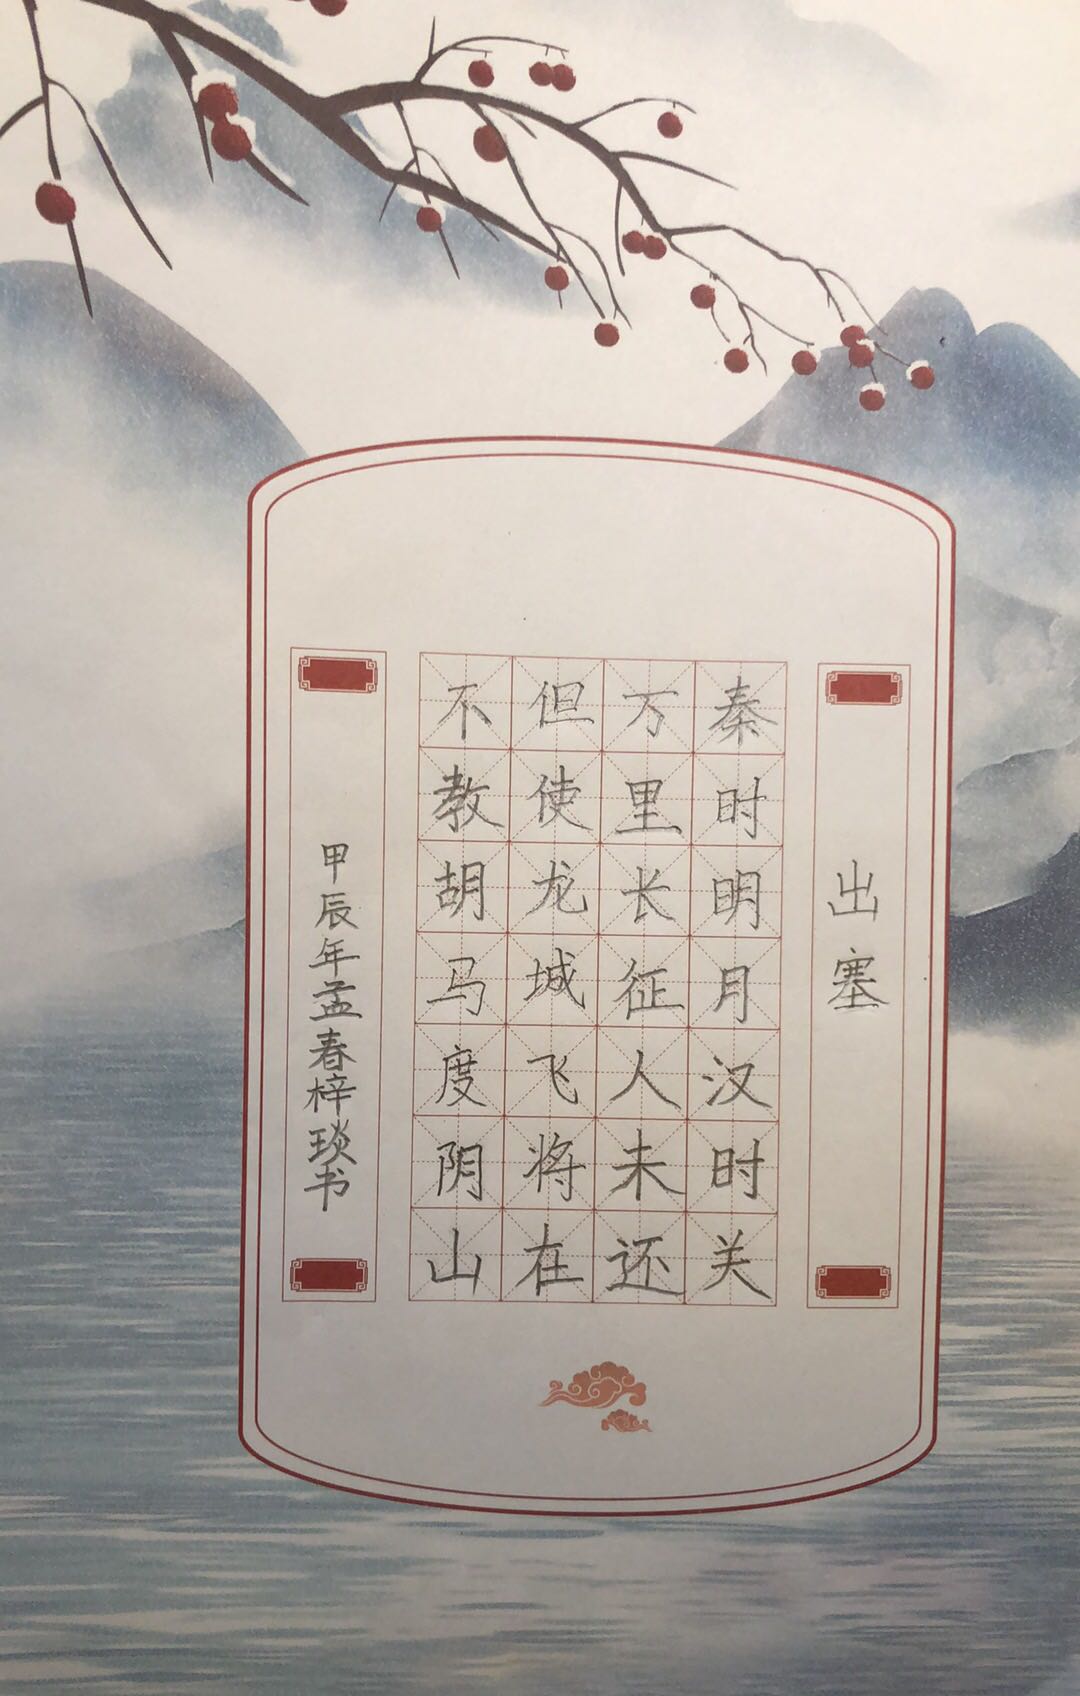 出塞
秦时明月汉时关
万里长征人未还
但使龙城飞将在
不教胡马度阴山
甲辰年孟春梓琰书